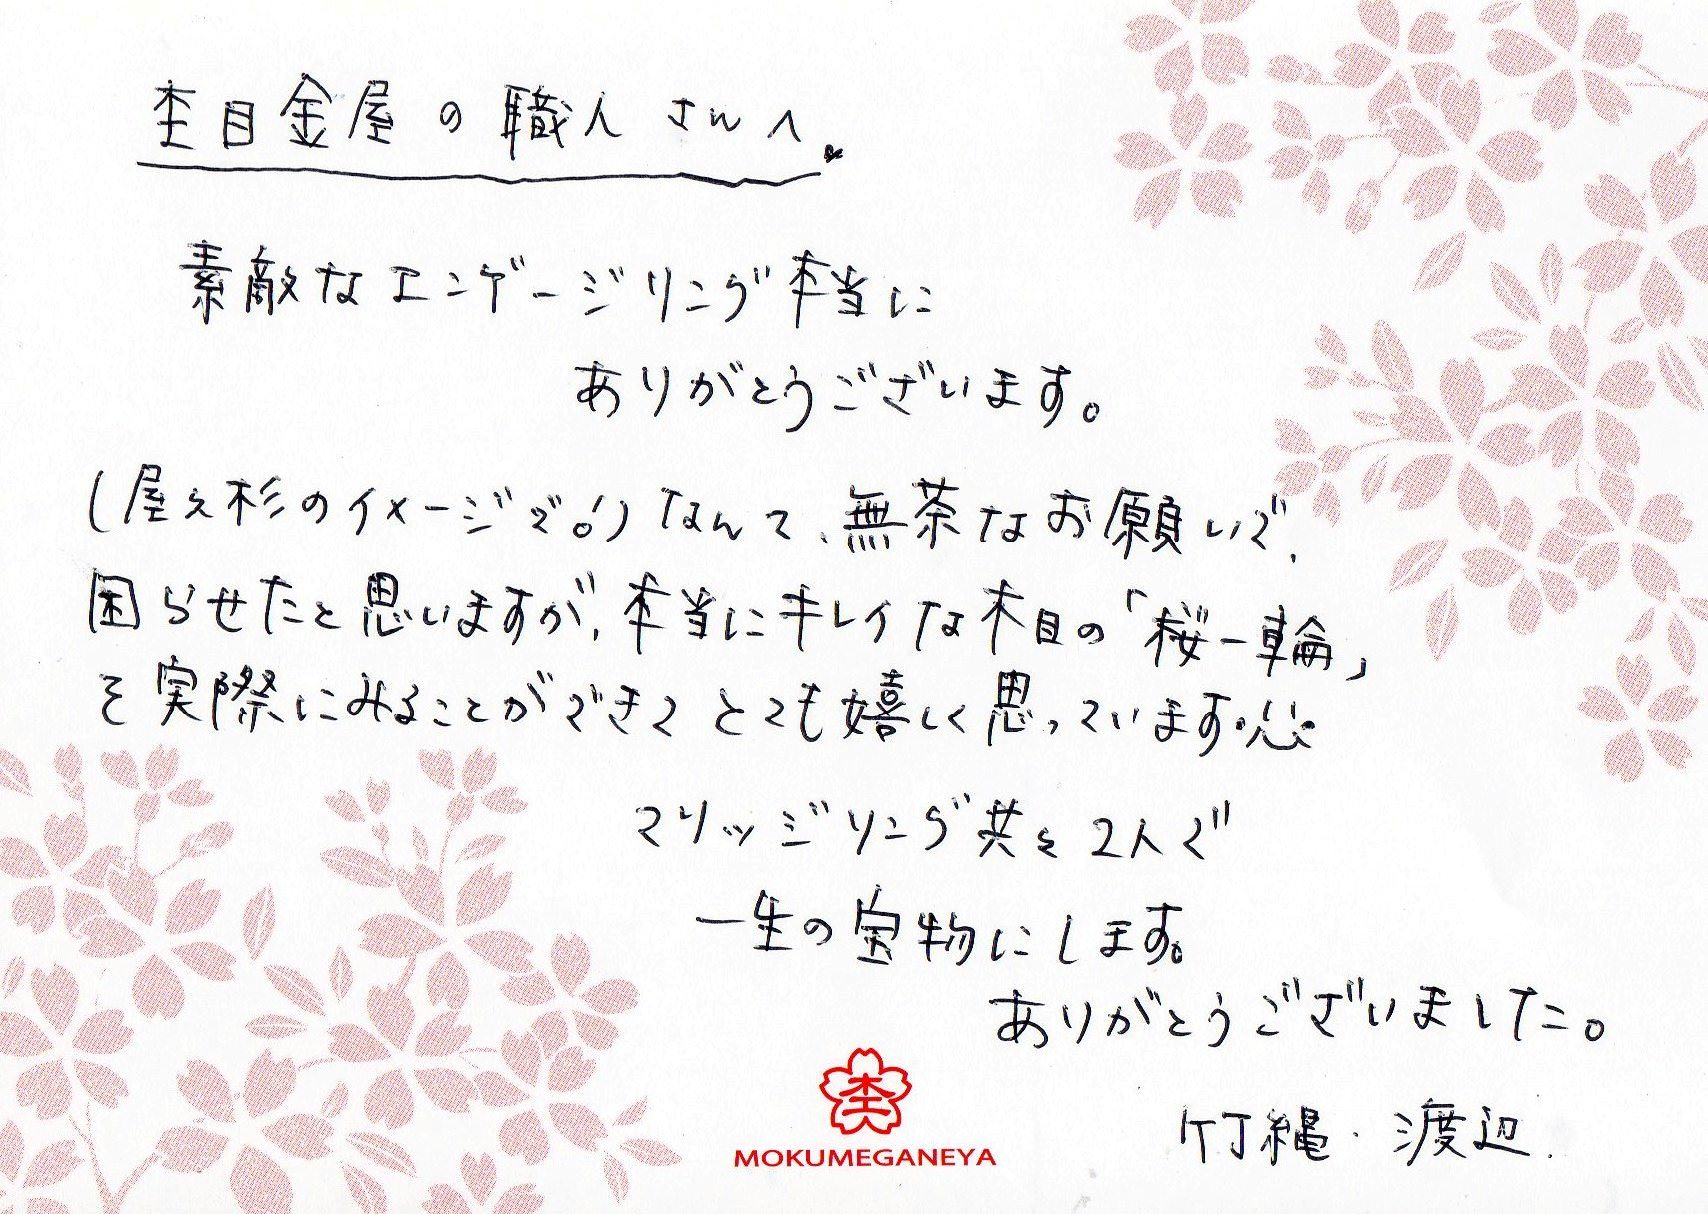 杢目金屋の職人さんへ
素敵なエンゲージリング本当に
ありがとうございます。
(屋久杉のイメージで!)なんて、無茶なお願いで、
困らせたと思いますが、本当にキレイな木目の「桜一輪」
を実際にみることができてとても嬉しく思っています
マリッジリング共々2人で
一生の宝物にします。
ありがとうございました。
竹縄・渡辺.
杢
MOKUMEGANEYA